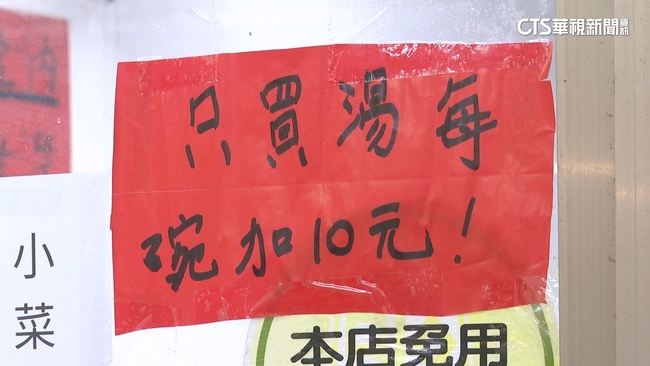 CTS華視新聞資訊
只買湯每
碗加10元!
小菜
本店免用